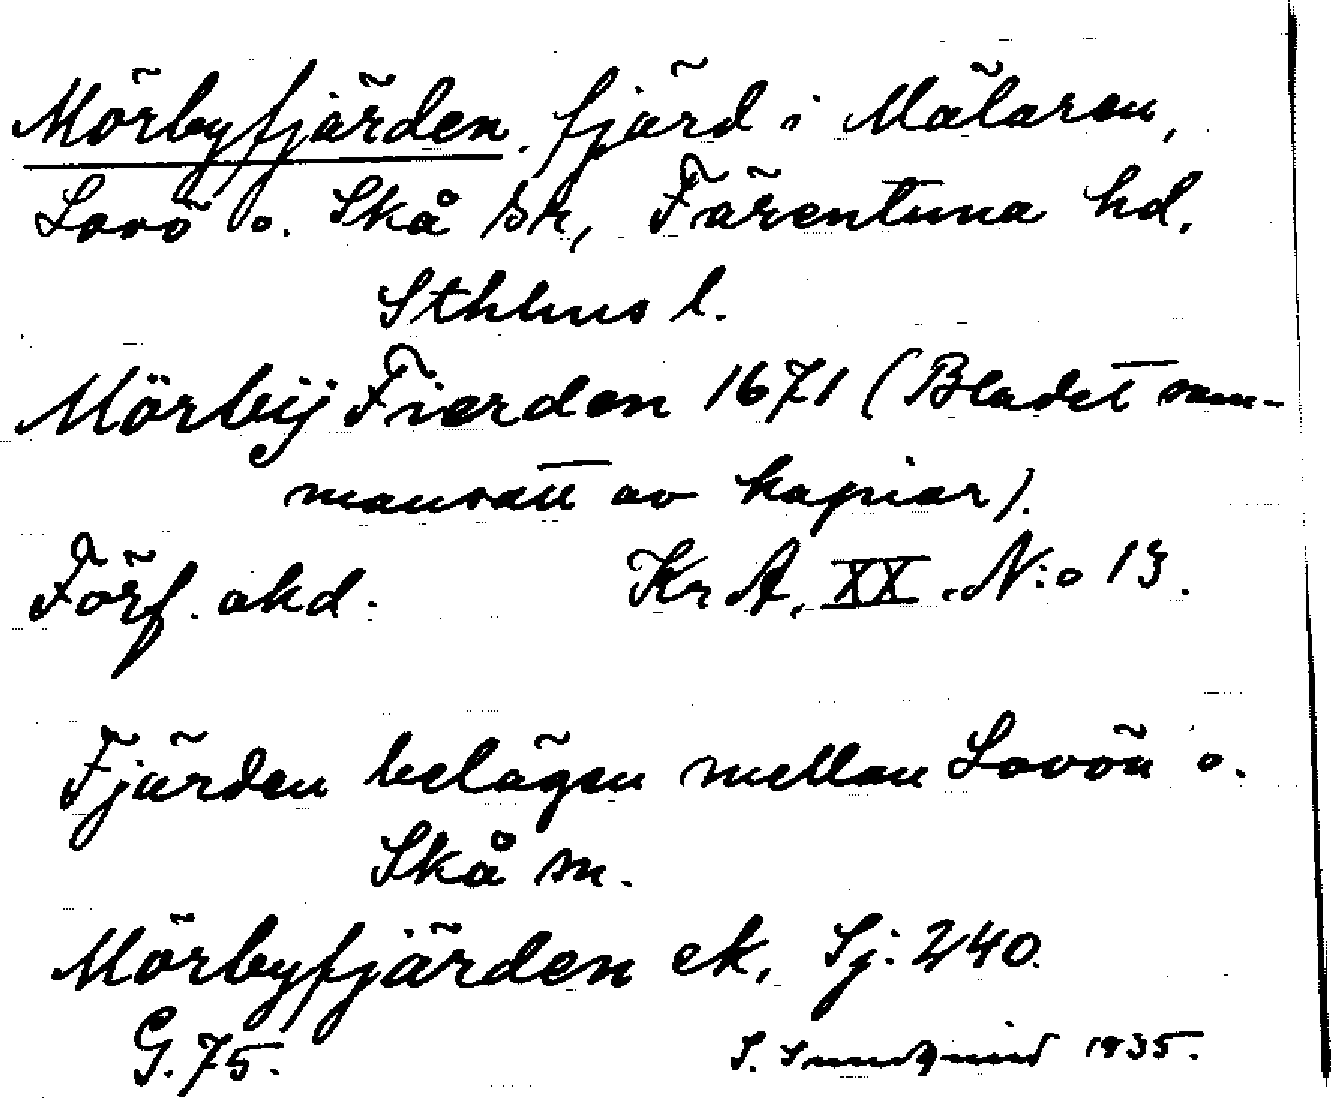 Mörbyfjärden. fjärd i Mälaren,
Lovö o. Skå sn, Färentuna hd.
Sthlms l.
Mörbÿ Fierden 1671 (Bladet sam-
mansatt av kopior).
Förf. okd. Kr A. XX. N:o 13.
Fjärden belägen mellan Lovön o.
Skå sn.
Mörbyfjärden ek. Sj: 240.
G. 75. S. Sundqvist 1935.